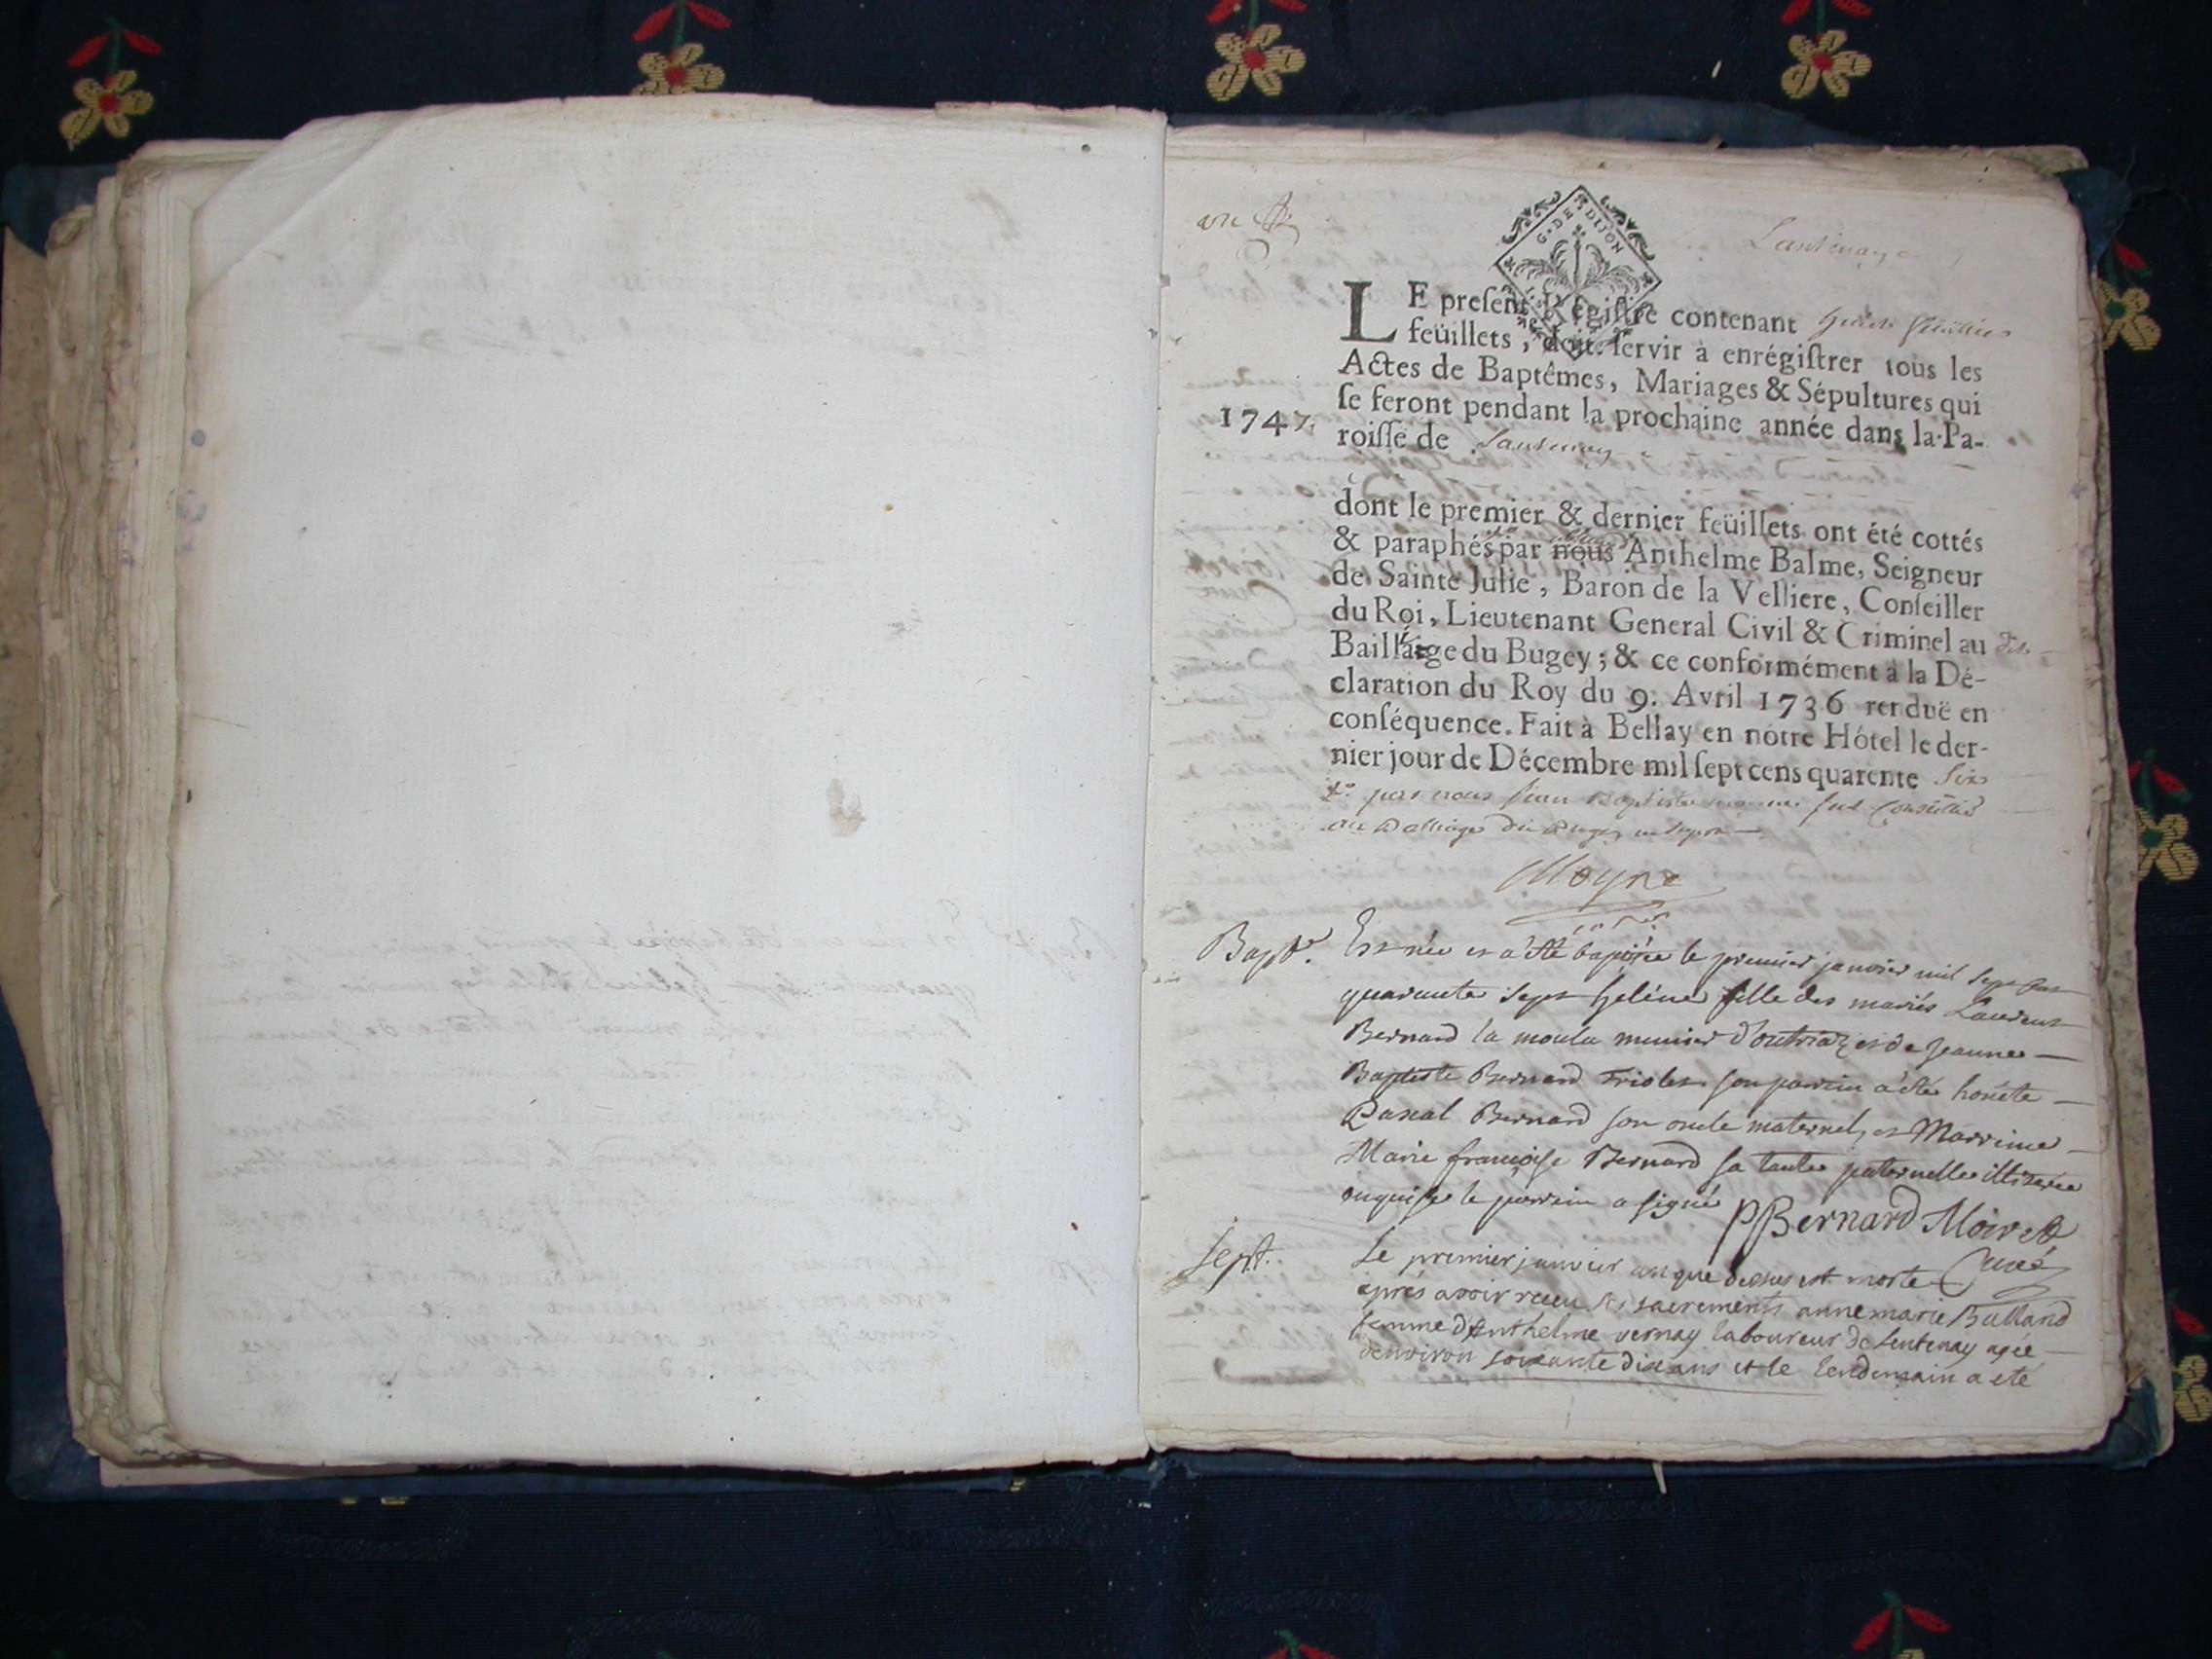 G. DE DIJON
Lantenay
LE preſent Régiſtre contenant huit feüilles
feüillets, doit ſervir à enrégiſtrer tous les
Actes de Baptêmes, Mariages & Sépultures qui
ſe feront pendant la prochaine année dans la Pa-
1747
roiſſe de Lantenay
dont le premier & dernier feüillets ont été cottés
& paraphés par nous Anthelme Balme, Seigneur
de Sainte Julie, Baron de la Velliere, Conſeiller
du Roi, Lieutenant General Civil & Criminel au
Bailliage du Bugey; & ce conformément à la Dé-
claration du Roy du 9. Avril 1736 renduë en
conſéquence. Fait à Bellay en nôtre Hôtel le der-
nier jour de Décembre mil ſept cens quarente Six
par nous Jean Baptiste Conseiller
au Balliage du Bugey
Moyne
Bapt. Est née et a été baptisée le premier janvier mil sept cent
quarante sept heléne fille des mariés Laurent
Bernard la moula munier d'outriaz et de Jeanne
Baptiste Bernard Triolet son parrin a été honête
Pascal Bernard son oncle maternel, et Marrine
Marie françoise Bernard sa tante paternelle illiterée
enquise le parrain a signé PBernard Moiret
Curé
Sept. Le premier janvier an que dessus est morte
après avoir receu les sacrements anne marie Balland
femme d'Anthelme vernay laboureur de Lentenay agée
d'environ soixante dix ans et le lendemain a eté